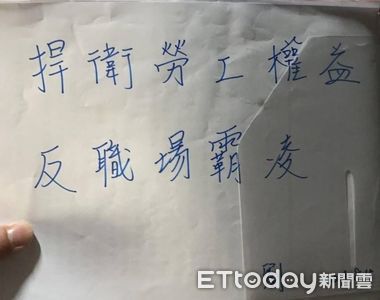 捍衛勞工權益
反職場霸凌
ETtoday新聞雲